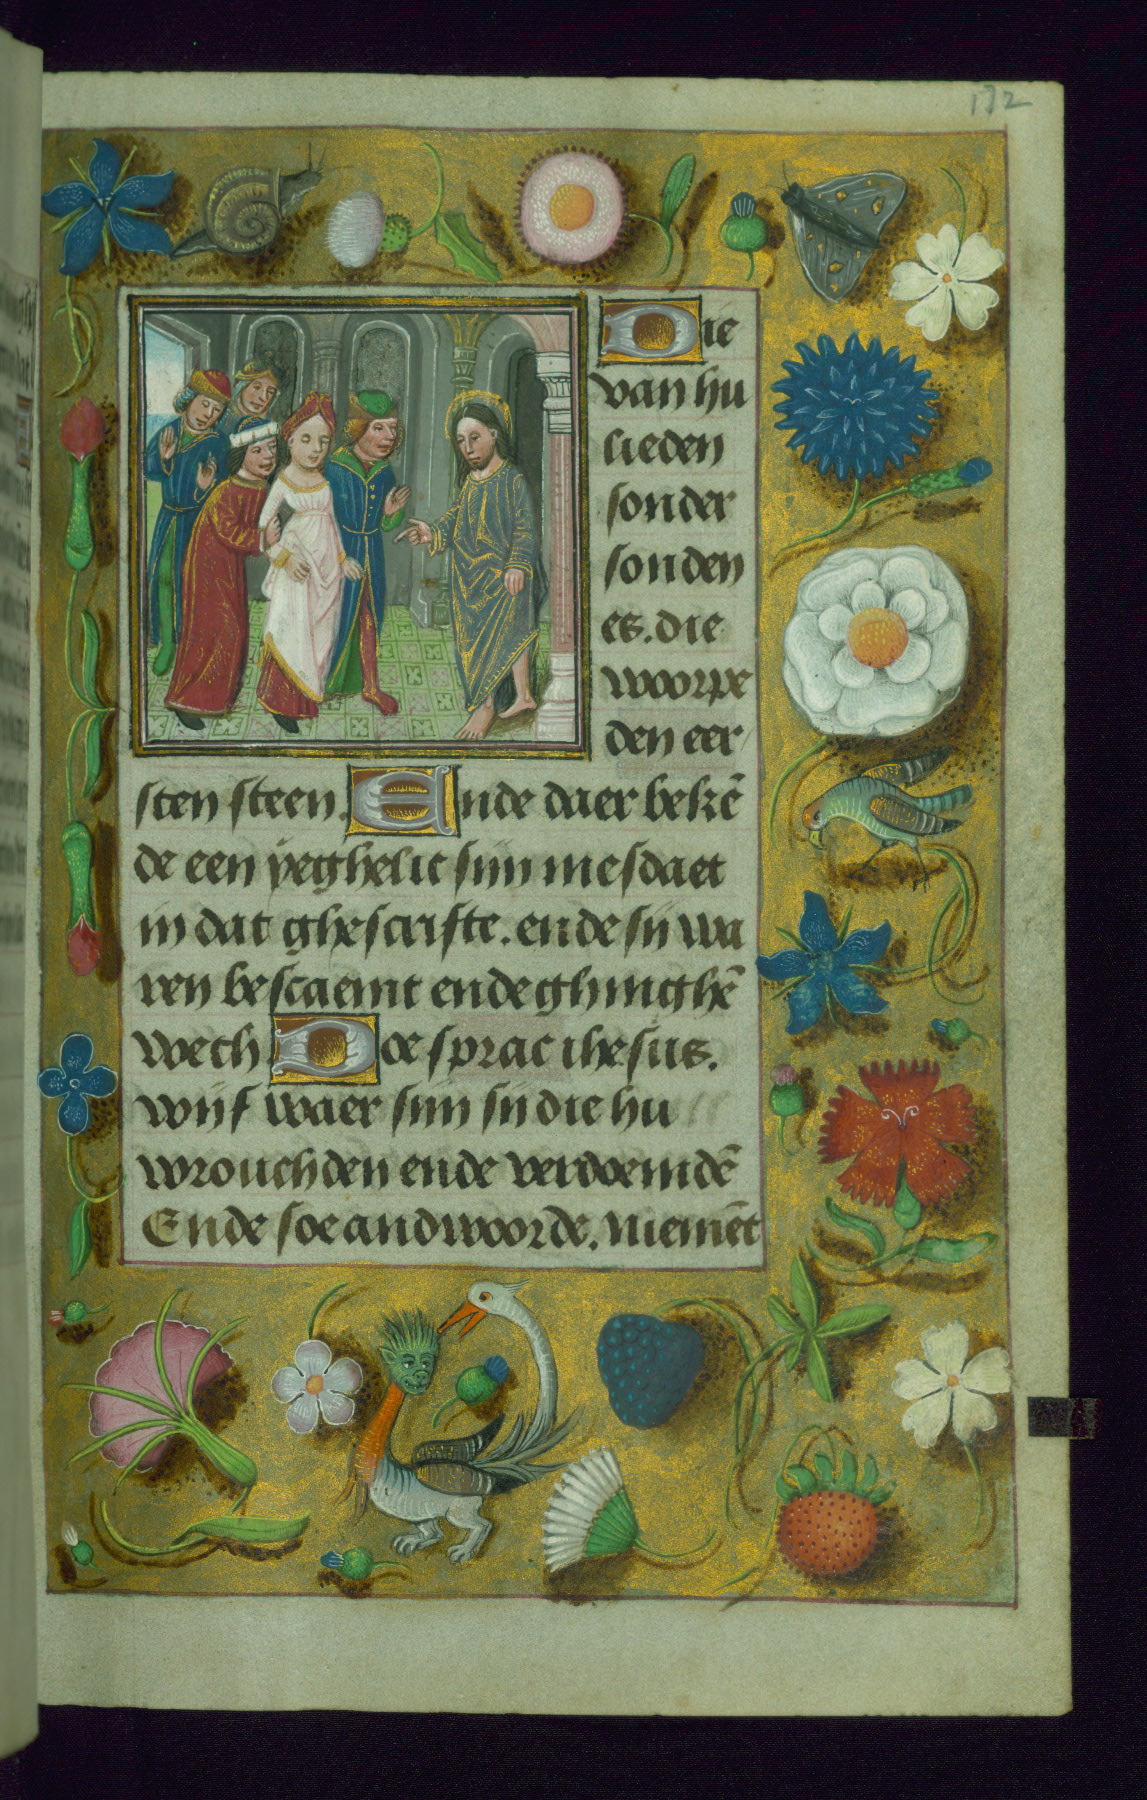 172
Die
van hu
lieden
sonder
sonden
es. die
woorpe
den eer
sten steen. Ende daer bekē
de een yeghelic sijn mesdaet
in dat ghescrifte. ende sij wa
ren bescaemt ende ghinghē
wech Doe sprac ihesus.
wijf waer sijn sij die hu
wrouchden ende verdoemdē
Ende soe andwoorde. niemēt